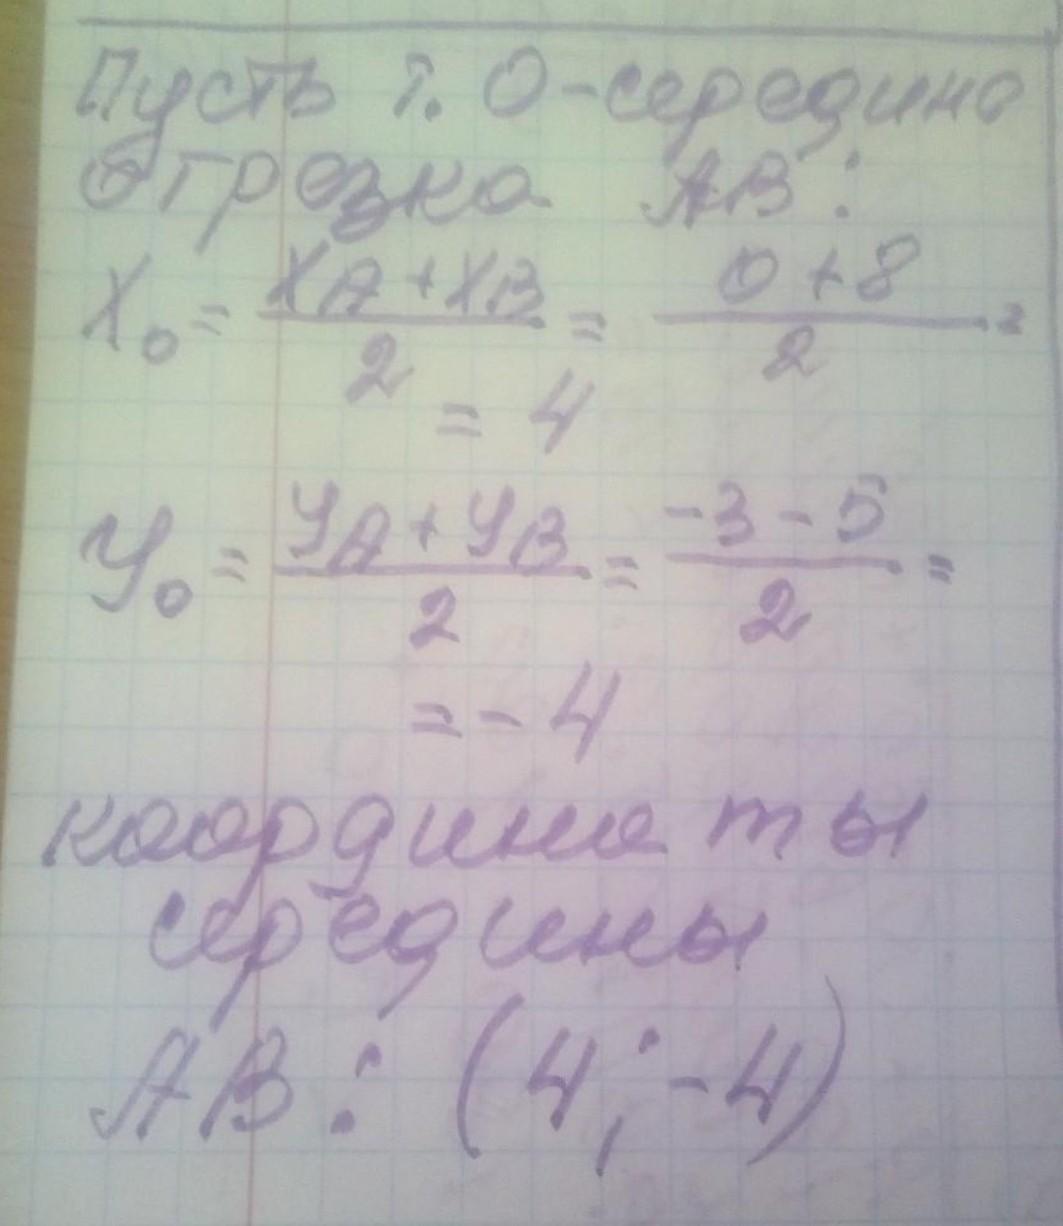 Пусть т. О-середина
отрезка АВ:
X₀ = (XА + XВ)/2 = (0 + 8)/2 =
= 4
У₀ = (УА + УВ)/2 = (-3 - 5)/2 =
= - 4
координаты
середины
АВ: (4; -4)